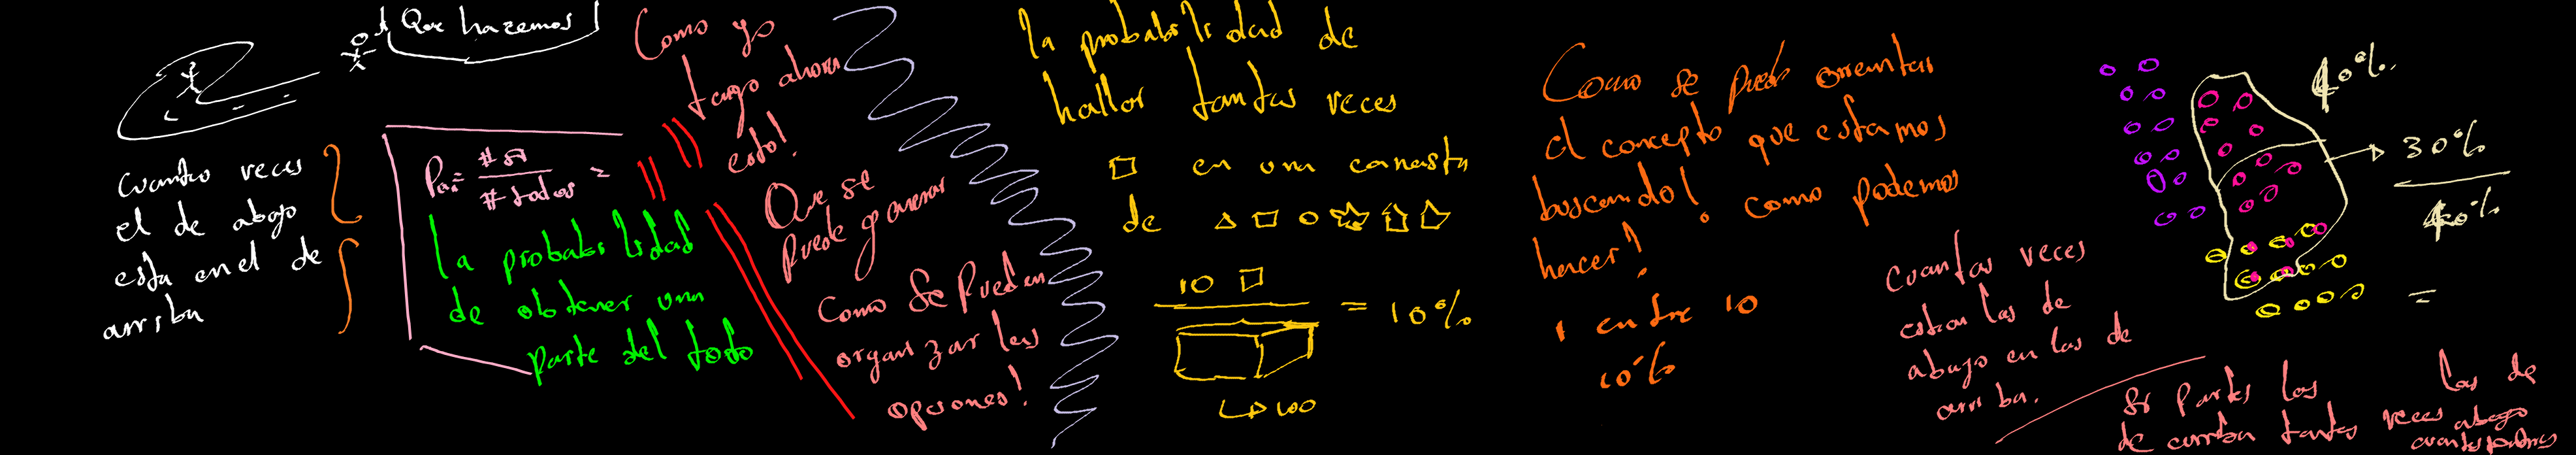 Que hazemos
Cuantas veces
el de abajo
esta en el de
arriba
# todos =
la probabilidad
de obtener una
parte del todo
Como yo
tengo ahora
esto!
Que se
puede generar
Como se pueden
organizar las
opciones!
la probabilidad de
hallar tantas veces
□ en una canasta
de △ □ ○
10 □
= 10%
↳ 100
Como se puede orientar
el concepto que estamos
buscando! como podemos
hacer!
1 entre 10
10%
40%
→ 30%
40%
=
Cuantas veces
estan las de
abajo en las de
arriba.
Si partes las
de arriba tantas veces
las de
abajo